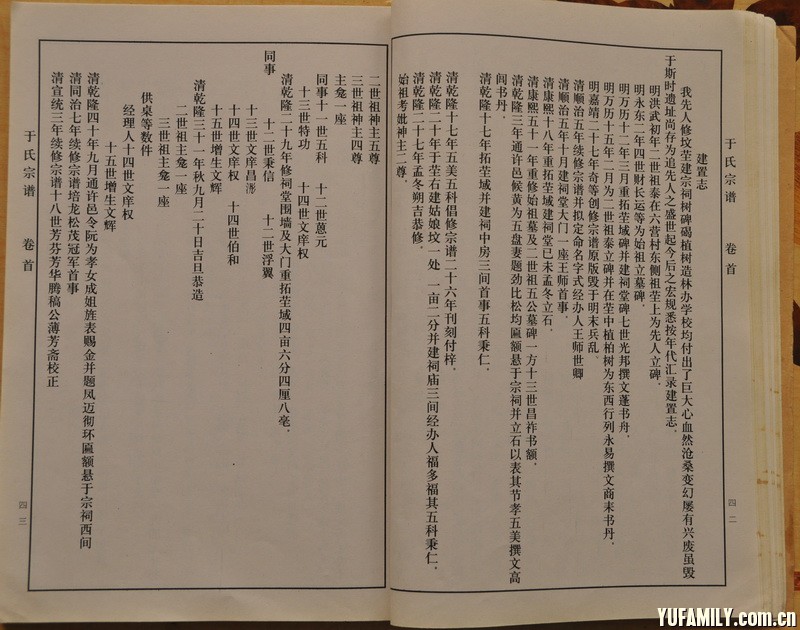 于氏宗谱 卷首
四二
建置志
我先人修坟茔建宗祠树碑碣植树造林办学校均付出了巨大心血然沧桑变幻屡有兴废虽毁
于斯时遗址尚存为追先人之盛世起今后之宏规悉按年代汇录建置志．
明洪武初年二世祖泰在六营村东侧祖茔上为先人立碑．
明永东二年四世财长运等为始祖立墓碑．
明万历十二年三月重拓茔域碑并建祠堂碑七世光邦撰文蓬书舟．
明万历十五年二月为二世祖泰立碑并在茔中植柏树为东西行列永易撰文商未书丹．
明嘉靖二十七年奇等创修宗谱原版毁于明末兵乱．
清顺治五年续修宗谱并拟定命名字式经办人王师世卿
清顺治五年十月建祠堂大门一座王师首事．
清康熙十八年重拓茔域建祠堂已未孟冬立石．
清康熙五十一年重修始祖墓及二世祖五公墓碑一方十三世昌祚书额．
清乾隆三年通许邑候黄为五盘妻题劲比松均匾额悬于宗祠并立石以表其节孝五美撰文高
闾书丹．
清乾隆十七年拓茔域并建祠中房三间首事五科秉仁．
清乾隆十七年五美五科倡修宗谱二十六年刊刻付梓．
清乾隆二十年于茔右建姑娘坟一处 一亩二分并建祠庙三间经办人福多福其五科秉仁．
清乾隆二十七年孟冬朔吉恭修．
始祖考妣神主二尊
二世祖神主五尊
三世祖神主四尊
主龛一座
同事十一世五科 十二世蒠元
十三世特功 十四世文庠权
清乾隆二十九年修祠堂围墙及大门重拓茔域四亩六分四厘八毫．
同事
十二世秉信 十二世浮翼
十三世文庠昌
十四世文庠权 十四世伯和
十五世增生文辉
清乾隆三十一年秋九月二十日吉旦恭造
二世祖主龛一座
三世祖主龛一座
供桌等数件
经理人十四世文庠权
十五世增生文辉
清乾隆四十年九月通许邑令阮为孝女成姐旌表赐金并题凤迈彻环匾额悬于宗祠西间
清同治七年续修宗谱培龙松茂冠军首事
清宣统三年续修宗谱十八世芳芬芳华腾稿公薄芳斋校正
于氏宗谱 卷首
四三
YUFAMILY.com.cn